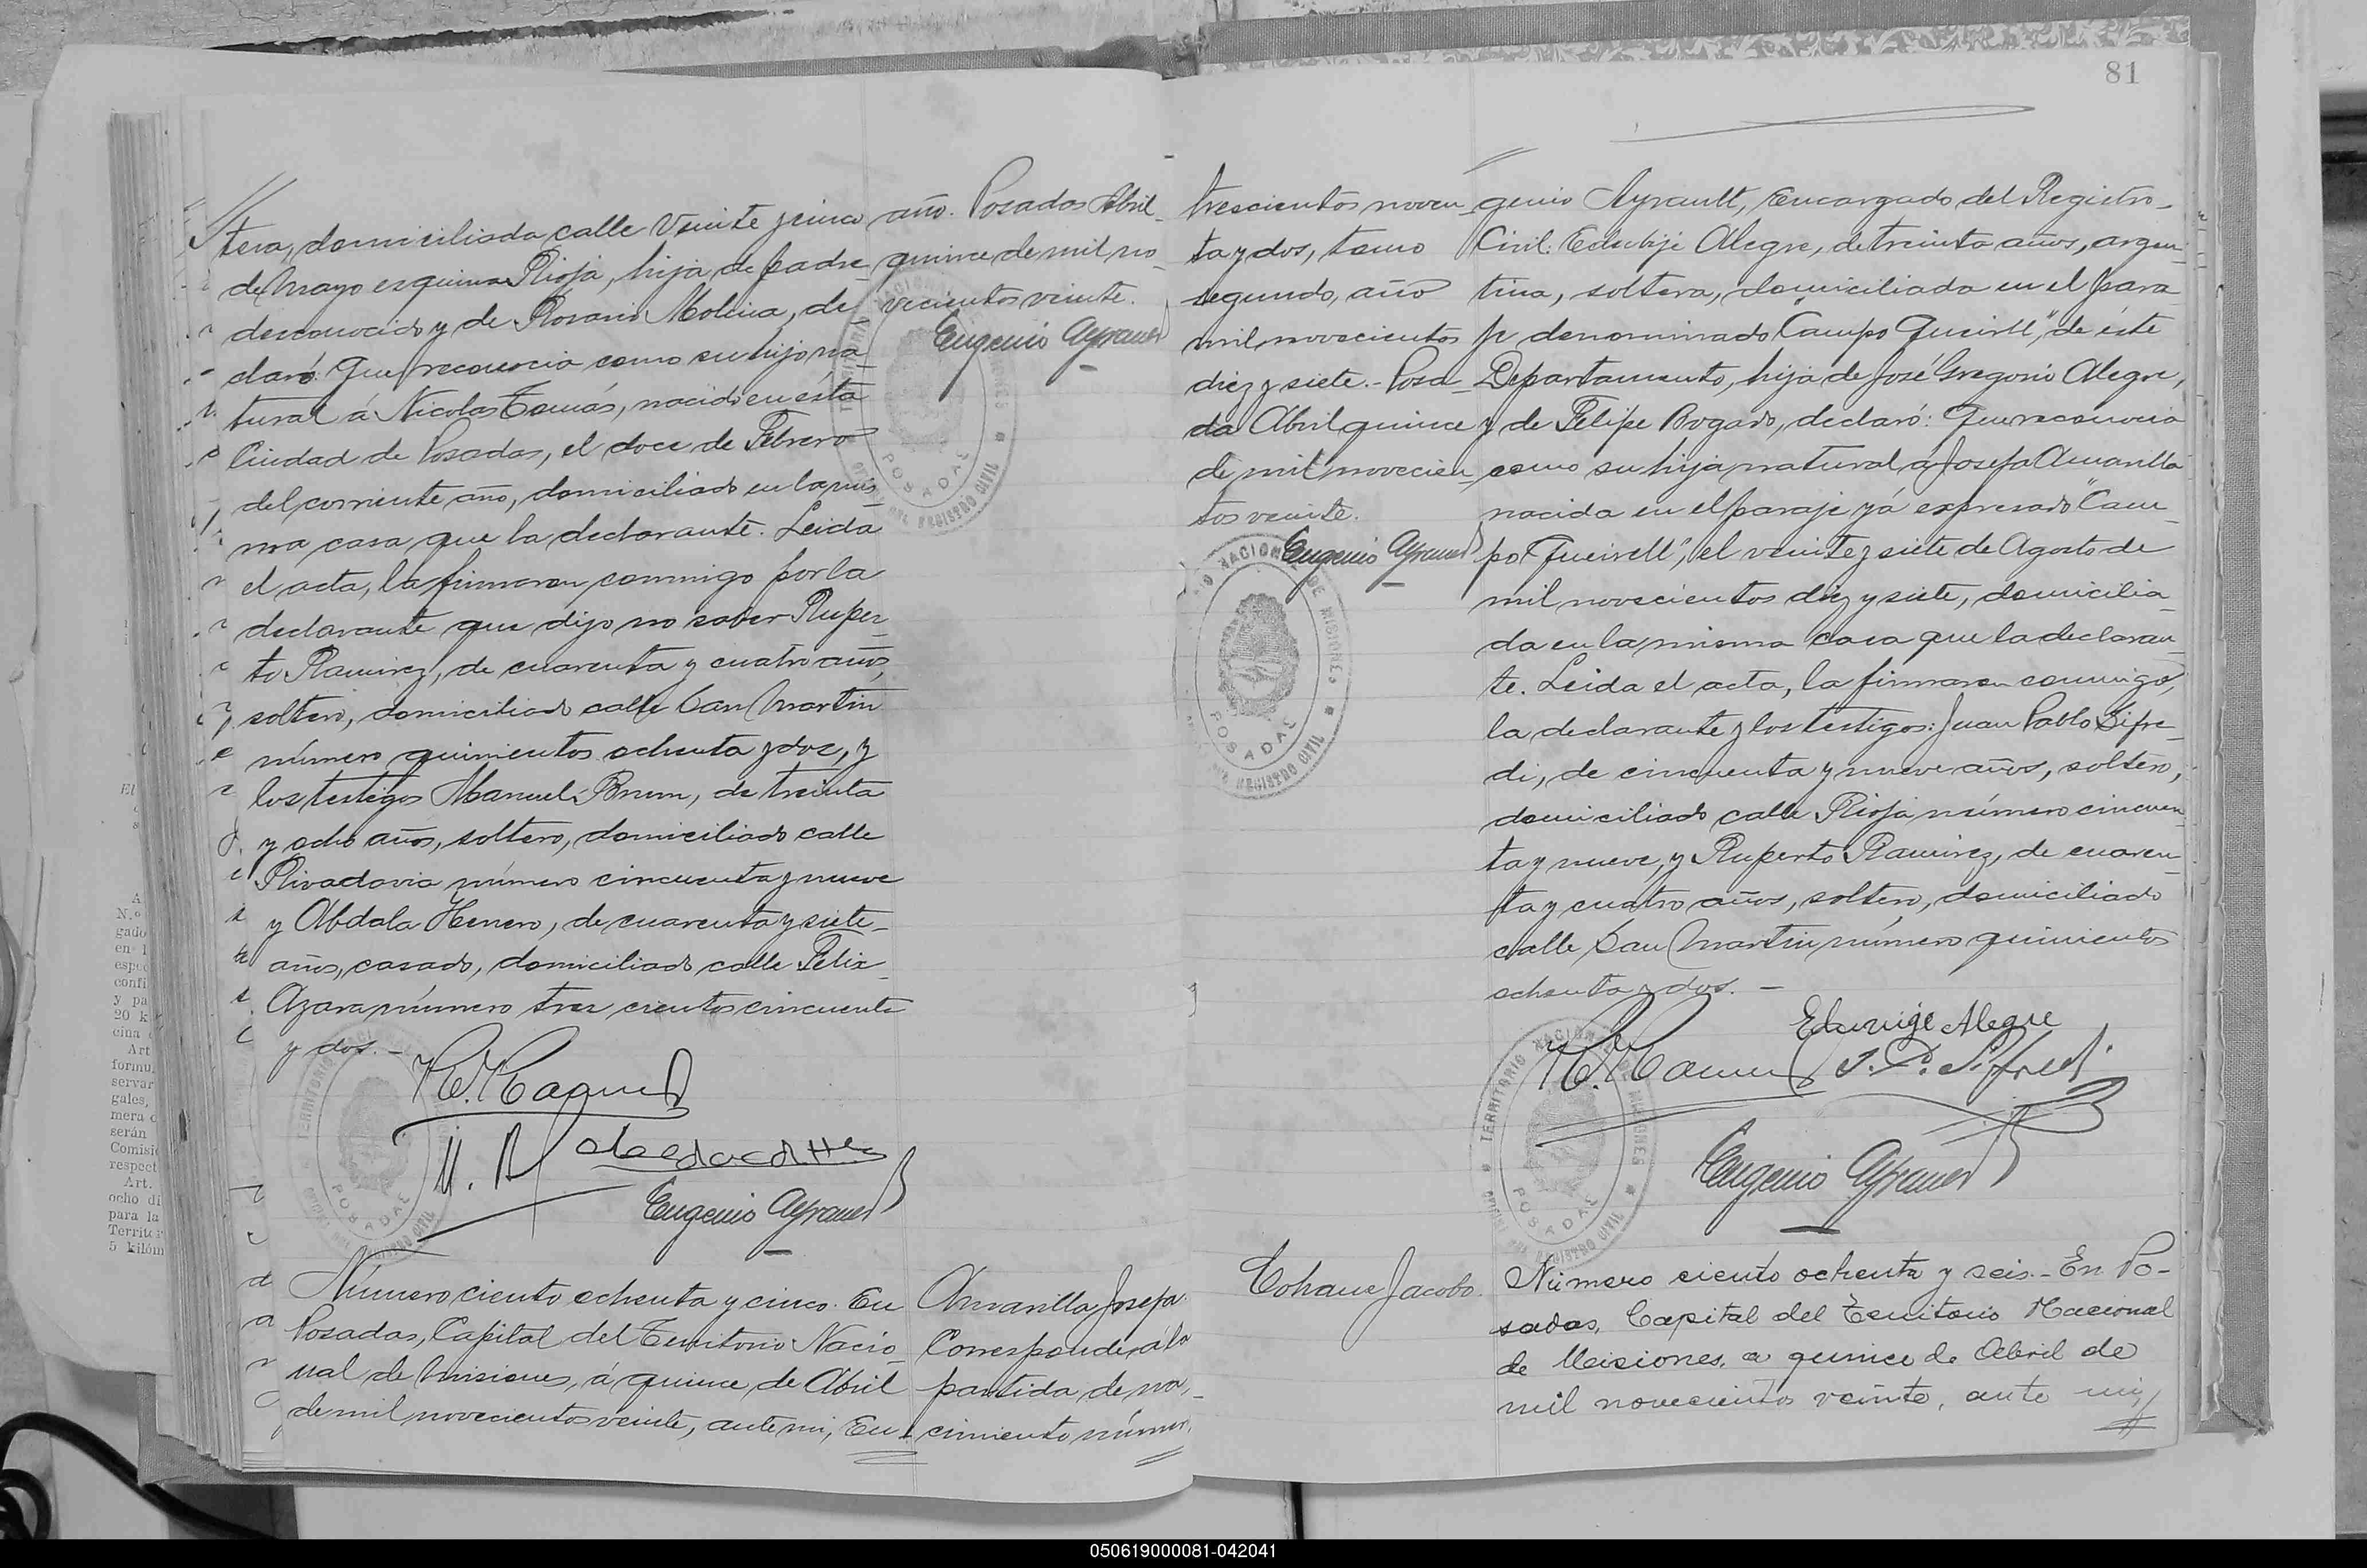 tera, domiciliada calle Veinte y cinco
de Mayo esquina Rioja, hija de padre
desconocido y de Rosario Molina, de_
claró: Que reconocia como su hijo na_
tural á Nicolas Tomás, nacido en ésta
Ciudad de Posadas, el doce de Febrero
del corriente año, domiciliado en la mis_
ma casa que la declarante. Leida
el acta, la firmaron conmigo por la
declarante que dijo no saber Ruper_
to Ramirez, de cuarenta y cuatro años,
soltero, domiciliado calle San Martin
número quinientos ochenta y dos, y
los testigos Manuel Brum, de treinta
y ocho años, soltero, domiciliado calle
Rivadavia número cincuenta y nueve
y Abdala Henero, de cuarenta y siete_
años, casado, domiciliado calle Felix_
Azara número tres cientos cincuenta
y dos.-
año. Posadas Abril_
quince de mil no_
vecientos veinte.
Eugenio Ayrault
Número ciento ochenta y cinco. En
Posadas, Capital del Territorio Nacio_
nal de Misiones, á quince de Abril
de mil novecientos veinte, ante mi, Eu_
Amarilla Josefa.
Corresponde á la
partida de na_
cimiento número
81
trescientos noven_
ta y dos, tomo
segundo, año
mil novecientos
diez y siete.- Posa_
da Abril quince
de mil novecien_
tos veinte.
Eugenio Ayrault
genio Ayrault, Encargado del Registro_
Civil: Edubije Alegre, de treinta años, argen_
tina, soltera, domiciliada en el para_
je denominado "Campo Queirell", de éste
Departamento, hija de José Gregorio Alegre,
y de Felipe Bogado, declaró: Que reconocia
como su hija natural á Josefa Amarilla
nacida en el paraje yá expresado "Cam_
po Queirell", el veinte y siete de Agosto de
mil novecientos diez y siete, domicilia_
da en la misma casa que la declaran_
te. Leida el acta, la firmaron conmigo,
la declarante y los testigos: Juan Pablo Sifre_
di, de cincuenta y nueve años, soltero,
domiciliado calle Rioja número cincuen_
ta y nueve, y Ruperto Ramirez, de cuaren_
ta y cuatro años, soltero, domiciliado
calle San Martin número quinientos
ochenta y dos.-
Eduvige Alegre
J. P. Sifredi
Eugenio Ayrault
Cohane Jacobo.
Número ciento ochenta y seis.- En Po-
sadas, Capital del Territorio Nacional
de Misiones, a quince de Abril de
mil novecientos veinte, ante mi,
050619000081-042041